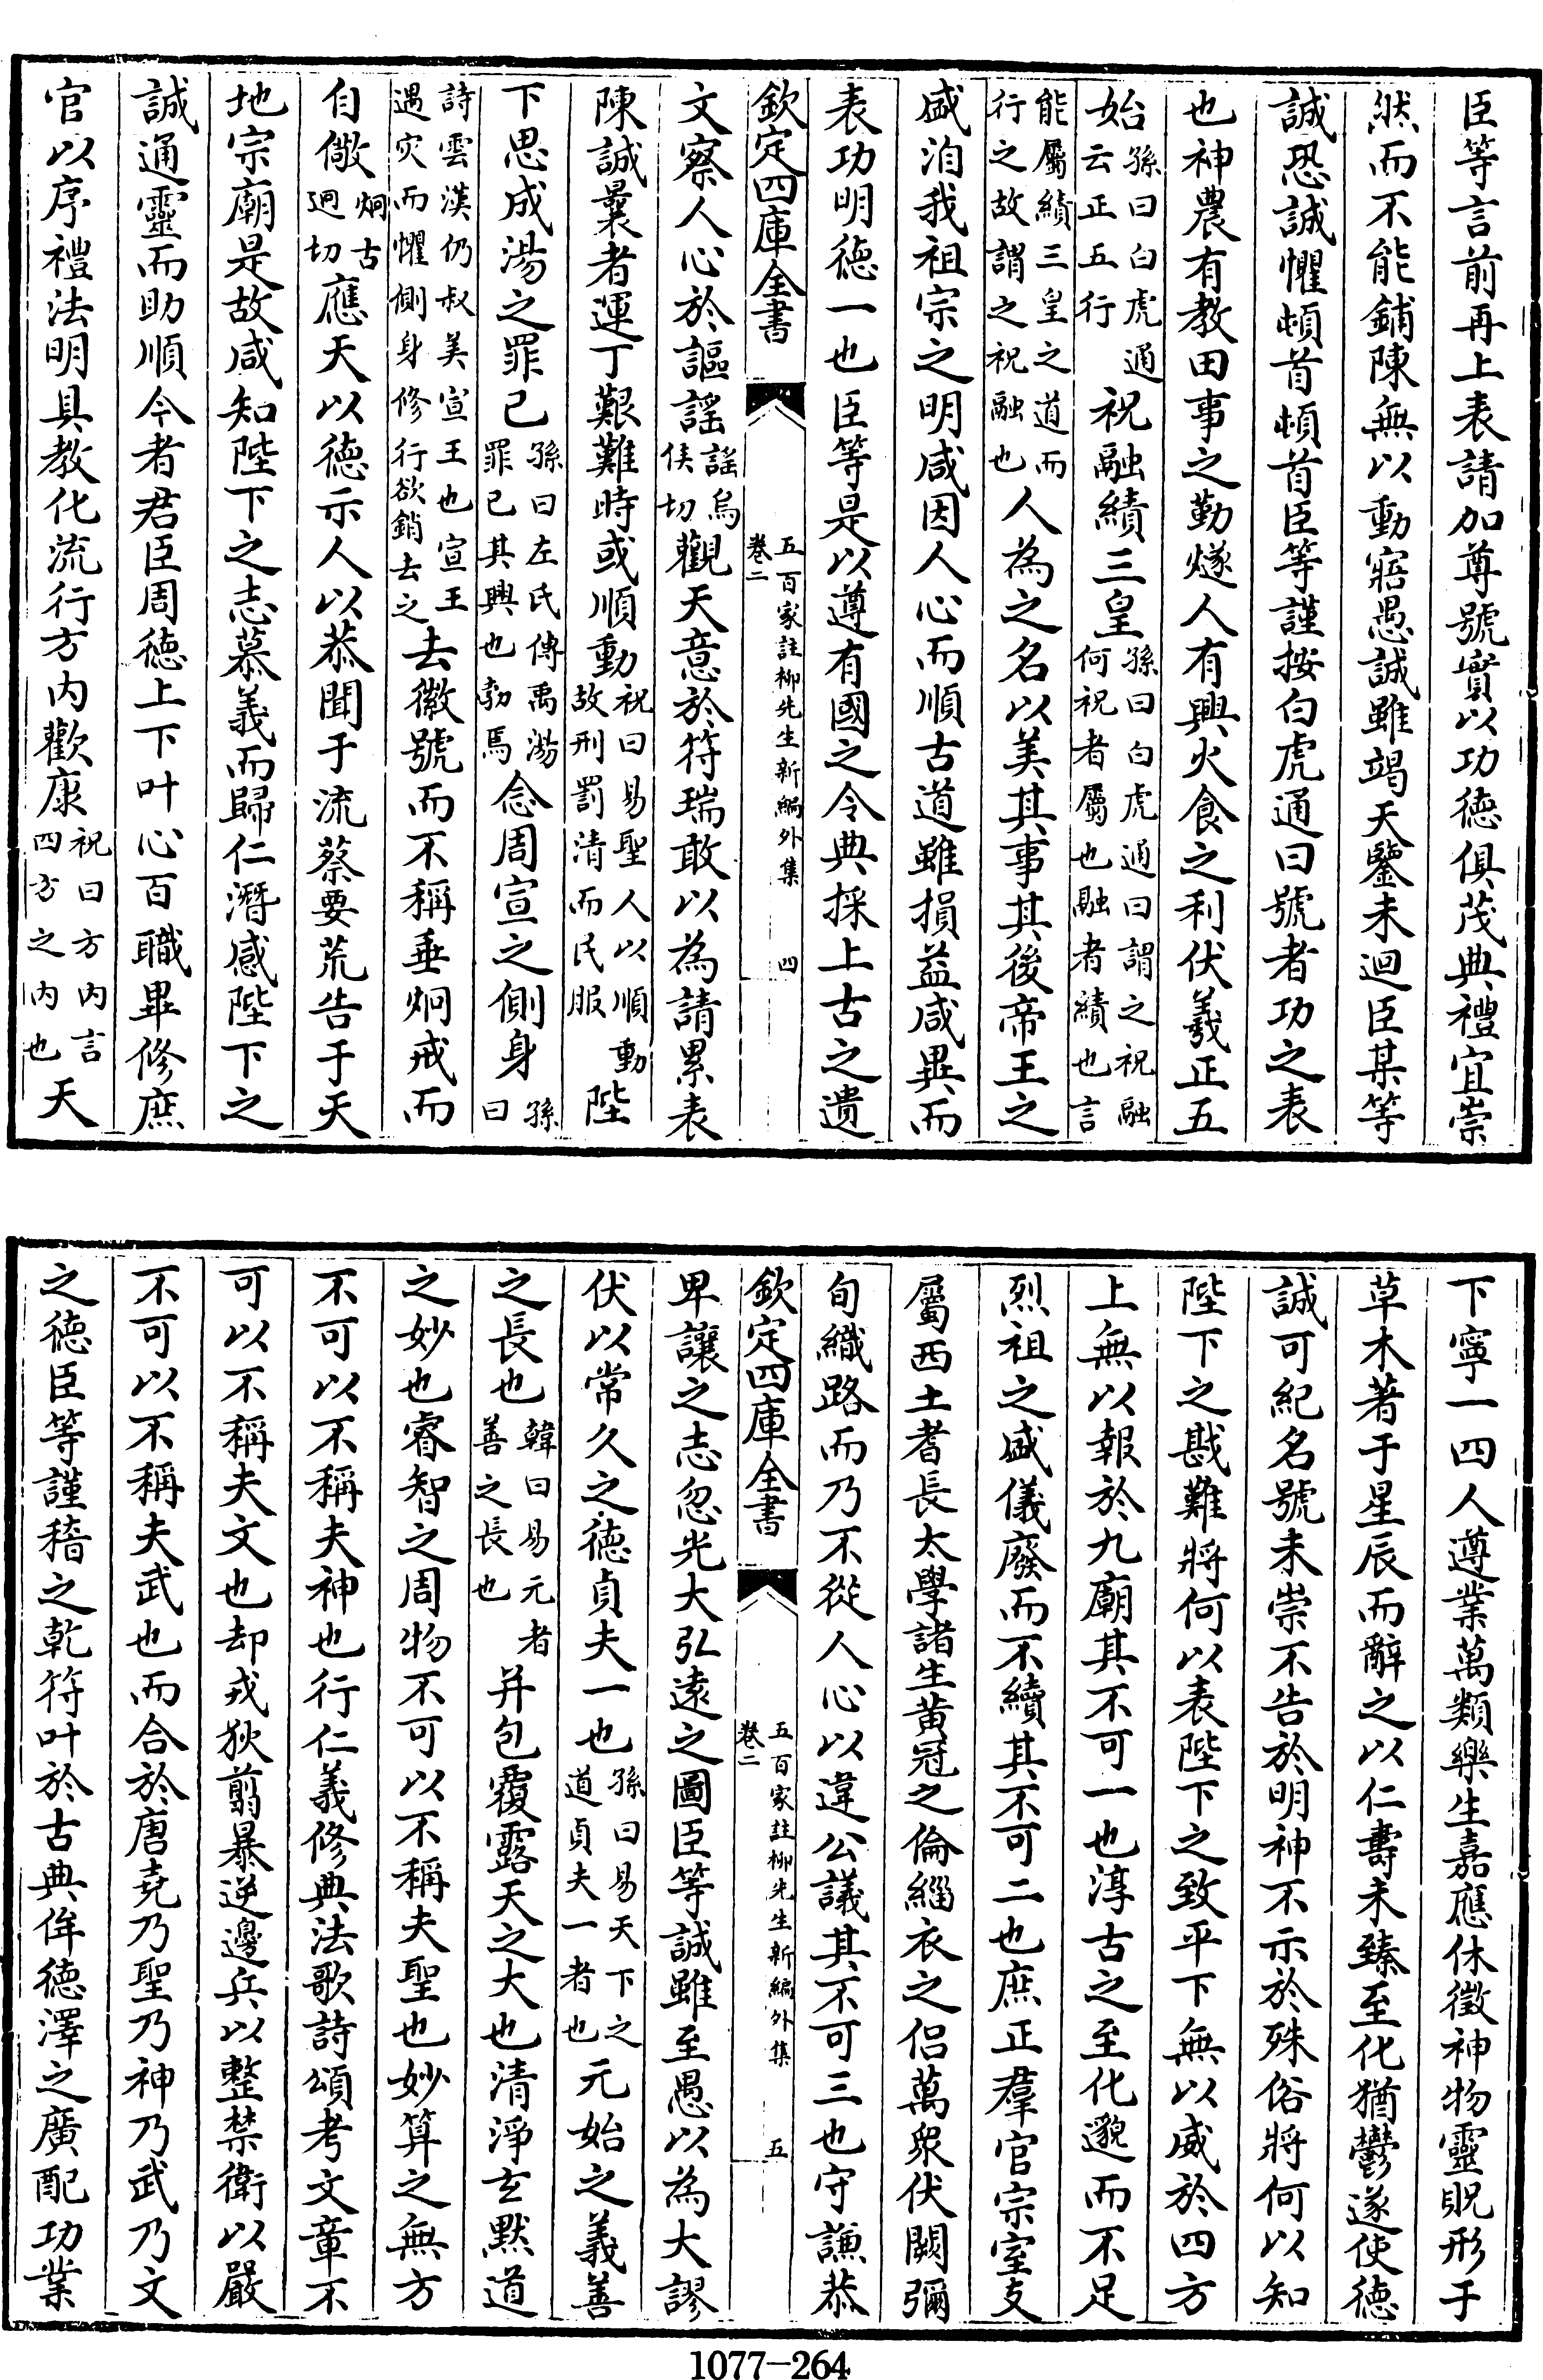 臣等言前再上表請加尊號實以功徳俱茂典禮宜崇
然而不能鋪陳無以動寤愚誠雖竭天鑒未迴臣某等
誠恐誠懼頓首頓首臣等謹按白虎通曰號者功之表
也神農有教田事之勤燧人有興火食之利伏羲正五
始孫曰白虎通云正五行祝融續三皇孫曰白虎通曰謂之祝融何祝者屬也融者續也言
能屬續三皇之道而行之故謂之祝融也人為之名以美其事其後帝王之
盛洎我祖宗之明咸因人心而順古道雖損益咸異而
表功明徳一也臣等是以遵有國之令典採上古之遺
欽定四庫全書 五百家註柳先生新編外集 卷二 四
文察人心於謳謡謡烏侯切觀天意於符瑞敢以為請累表
陳誠曩者運丁艱難時或順動祝曰易聖人以順動故刑罰清而民服陛
下思成湯之罪已孫曰左氏傳禹湯罪已其興也勃焉念周宣之側身孫曰
詩雲漢仍叔美宣王也宣王遇灾而懼側身修行欲銷去之去徽號而不稱垂炯戒而
自儆炯古迥切應天以徳示人以恭聞于流蔡要荒告于天
地宗廟是故咸知陛下之志慕義而歸仁潛感陛下之
誠通靈而助順今者君臣周徳上下叶心百職畢修庶
官以序禮法明具教化流行方内歡康祝曰方内言四方之内也天
下寧一四人遵業萬類樂生嘉應休徴神物靈貺形于
草木著于星辰而辭之以仁壽未臻至化猶鬱遂使徳
誠可紀名號未崇不告於明神不示於殊俗將何以知
陛下之戡難將何以表陛下之致平下無以威於四方
上無以報於九廟其不可一也淳古之至化邈而不足
烈祖之盛儀廢而不續其不可二也庶正羣官宗室支
屬西土耆長太學諸生黄冠之倫緇衣之侣萬衆伏闕彌
旬織路而乃不從人心以違公議其不可三也守謙恭
欽定四庫全書 五百家註柳先生新編外集 卷二 五
卑讓之志忽光大弘遠之圖臣等誠雖至愚以為大謬
伏以常久之徳貞夫一也孫曰易天下之道貞夫一者也元始之義善
之長也韓曰易元者善之長也并包覆露天之大也清淨玄默道
之妙也睿智之周物不可以不稱夫聖也妙算之無方
不可以不稱夫神也行仁義修典法歌詩頌考文章不
可以不稱夫文也却戎狄翦暴逆邊兵以整禁衛以嚴
不可以不稱夫武也而合於唐堯乃聖乃神乃武乃文
之徳臣等謹稽之乾符叶於古典侔徳澤之廣配功業
1077-264